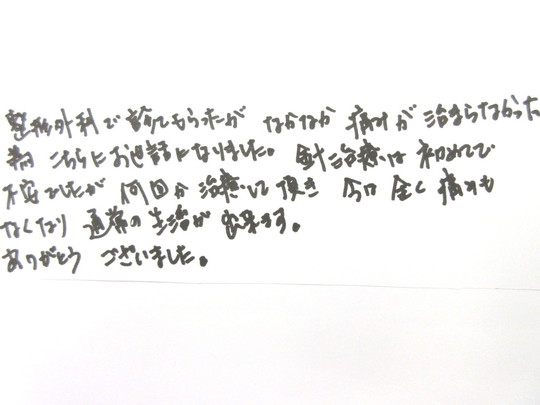 整形外科で診てもらったが なかなか 痛みが 治まらなかった
為 こちらにお世話になりました。 針治療は 初めてで
不安でしたが 何回か 治療して 頂き 今は 全く 痛みも
なくなり 通常の 生活が 出来ます。
ありがとう ございました。